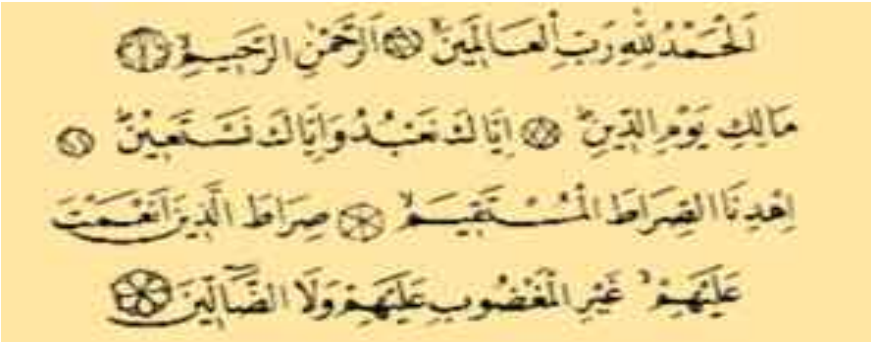 اَلْحَمْدُ لِلّٰهِ رَبِّ الْعَالَمِينَۙ اَلرَّحْمٰنِ الرَّحِيمِۙ
مَالِكِ يَوْمِ الدِّينِۜ اِيَّاكَ نَعْبُدُ وَاِيَّاكَ نَسْتَعِينُۜ
اِهْدِنَا الصِّرَاطَ الْمُسْتَقِيمَۙ صِرَاطَ الَّذِينَ اَنْعَمْتَ
عَلَيْهِمْۙ غَيْرِ الْمَغْضُوبِ عَلَيْهِمْ وَلَا الضَّٓالِّينَ